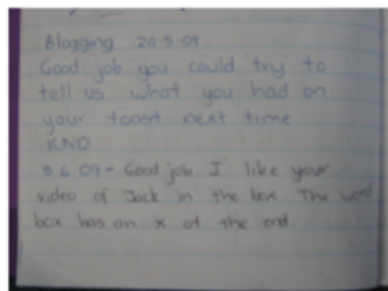 Blogging 20.5.09
Good job you could try to
tell us what you had on
your toast next time.
KND
8.6.09 - Good job. I like your
video of Jack in the box. The word
box has an x at the end.